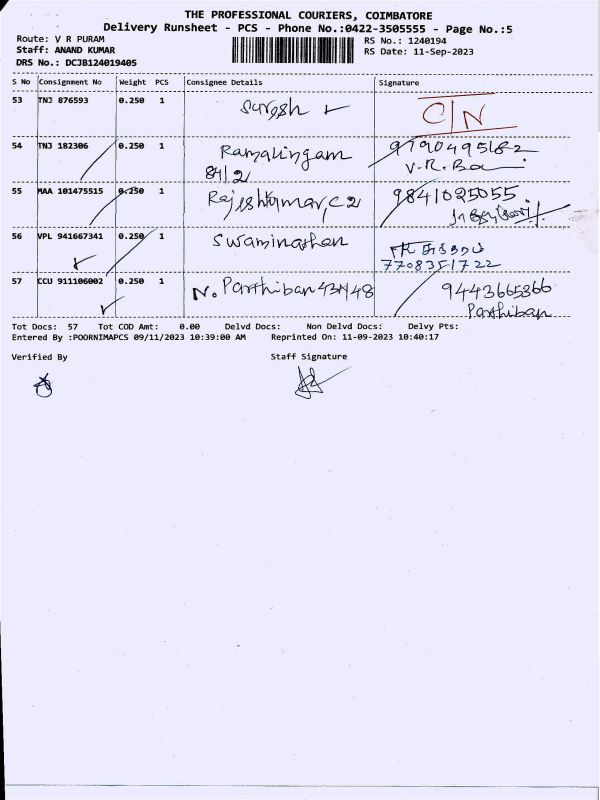 THE PROFESSIONAL COURIERS, COIMBATORE
Delivery Runsheet - PCS - Phone No.:0422-3505555 - Page No.:5
Route: V R PURAM
RS No.: 1240194
Staff: ANAND KUMAR
RS Date: 11-Sep-2023
DRS No.: DCJB124019405
S No Consignment No Weight PCS Consignee Details Signature
53 TNJ 876593 0.250 1 Suresh C/N
54 TNJ 182306 0.250 1 Ramalingam 9790495182
84/2 V.R.
55 MAA 101475515 0.250 1 Rajeshkumar, C2 9841025055
56 VPL 941667341 0.250 1 Swaminathan
7708351722
57 CCU 911106002 0.250 1 N. Parthiban 43A/48 9443665366
Parthiban
Tot Docs: 57 Tot COD Amt: 0.00 Delvd Docs: Non Delvd Docs: Delvy Pts:
Entered By :POORNIMAPCS 09/11/2023 10:39:00 AM Reprinted On: 11-09-2023 10:40:17
Verified By Staff Signature